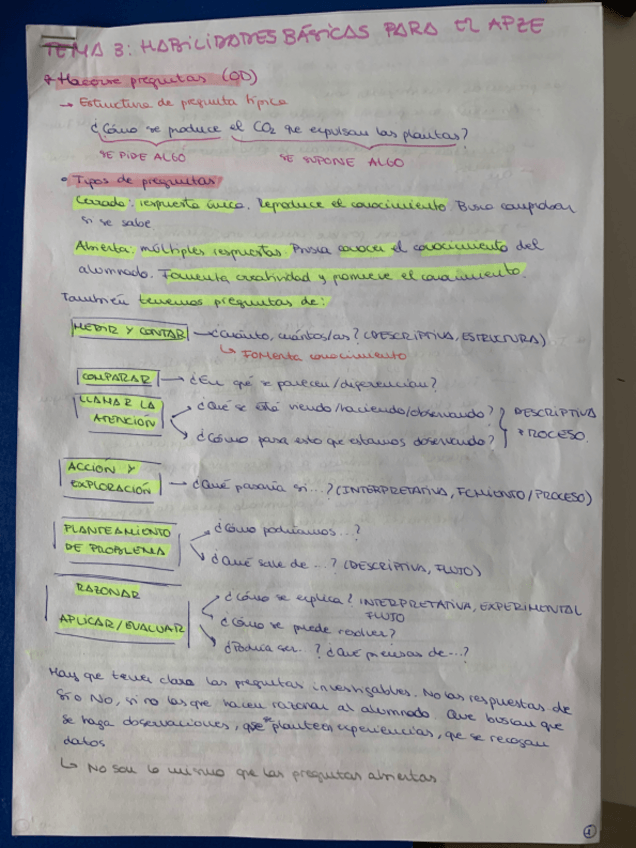 TEMA 3: HABILIDADES BÁSICAS PARA EL APZE
* Hacerse preguntas (OD)
→ Estructura de pregunta típica
¿Cómo se produce el CO2 que expulsan las plantas?
SE PIDE ALGO SE SUPONE ALGO
• Tipos de preguntas
Cerrado: respuesta única. Reproduce el conocimiento. Busca comprobar
si se sabe
Abierta: múltiples respuestas. Busca conocer el conocimiento del
alumnado. Fomenta creatividad y promueve el conocimiento.
También tenemos preguntas de:
MEDIR Y CONTAR → ¿Cuánto, cuántos/as? (DESCRIPTIVA, ESTRUCTURA)
↳ FOMENTA conocimiento
COMPARAR → ¿En qué se parecen/diferencian?
LLAMAR LA ATENCIÓN → ¿Qué se está viendo/haciendo/observando? } DESCRIPTIVA
→ ¿Cómo pasa esto que estamos observando? PROCESO
ACCIÓN Y
EXPLORACIÓN → ¿Qué pasaría si...? (INTERPRETATIVA, FCMIENTO/PROCESO)
PLANTEAMIENTO → ¿Cómo podríamos...?
DE PROBLEMA → ¿Qué sale de ...? (DESCRIPTIVA, FLUJO)
RAZONAR → ¿Cómo se explica? INTERPRETATIVA, EXPERIMENTAL
FLUJO
APLICAR/EVALUAR → ¿Cómo se puede resolver?
→ ¿Podría ser..? ¿Qué piensas de...?
Hay que tener claro las preguntas investigables. No las respuestas de
Sí o No, si no las que hacen razonar al alumnado. Que buscan que
se haga observaciones, que se planteen experiencias, que se recogan
datos
↳ No son lo mismo que las preguntas abiertas
1